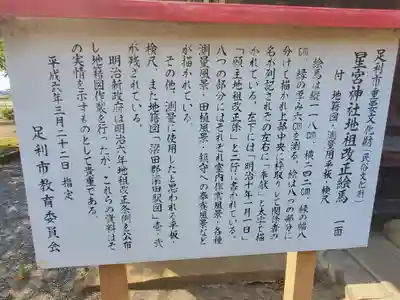 足利市重要文化財(民俗文化財)
星宮神社地租改正絵馬 一面
付 地籍図・測量用平板・検尺
絵馬は縦一一八㎝、横一四二㎝、縁の幅八
㎝、縁の厚み六㎝を測る。絵は八つの部分に
分けて描かれ上部中央に枠取りして関係者の
名が列記されその左右に「奉献」と太字で描
かれている。左下には「明治十年一月一日」
「願主地租改正係」と二行に書かれている。
八つの部分にはそれぞれ室内作業風景・各種
測量風景・田植風景・鎮守への奉奏風景など
が描かれている。
その他、測量に使用したと思われる平板・
検尺、また地籍図「梁田郡梁田駅図」壱・弐
が残されている。
明治新政府は明治六年地租改正条例を公布
し地籍図作製を行ったが、これらの資料はそ
の実情を示すものとして貴重である。
平成六年三月二十二日 指定
足利市教育委員会